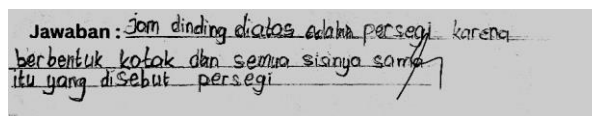 Jawaban : Jam dinding diatas adalah persegi karena
berbentuk kotak dan semua sisinya sama
itu yang disebut persegi